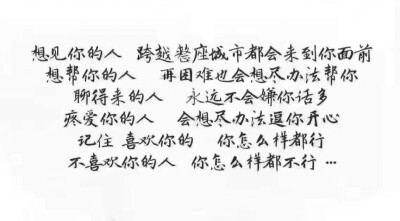 想见你的人 跨越整座城市都会来到你面前
想帮你的人 再困难也会想尽办法帮你
聊得来的人 永远不会嫌你话多
疼爱你的人 会想尽办法逗你开心
记住 喜欢你的 你怎么样都行
不喜欢你的人 你怎么样都不行…